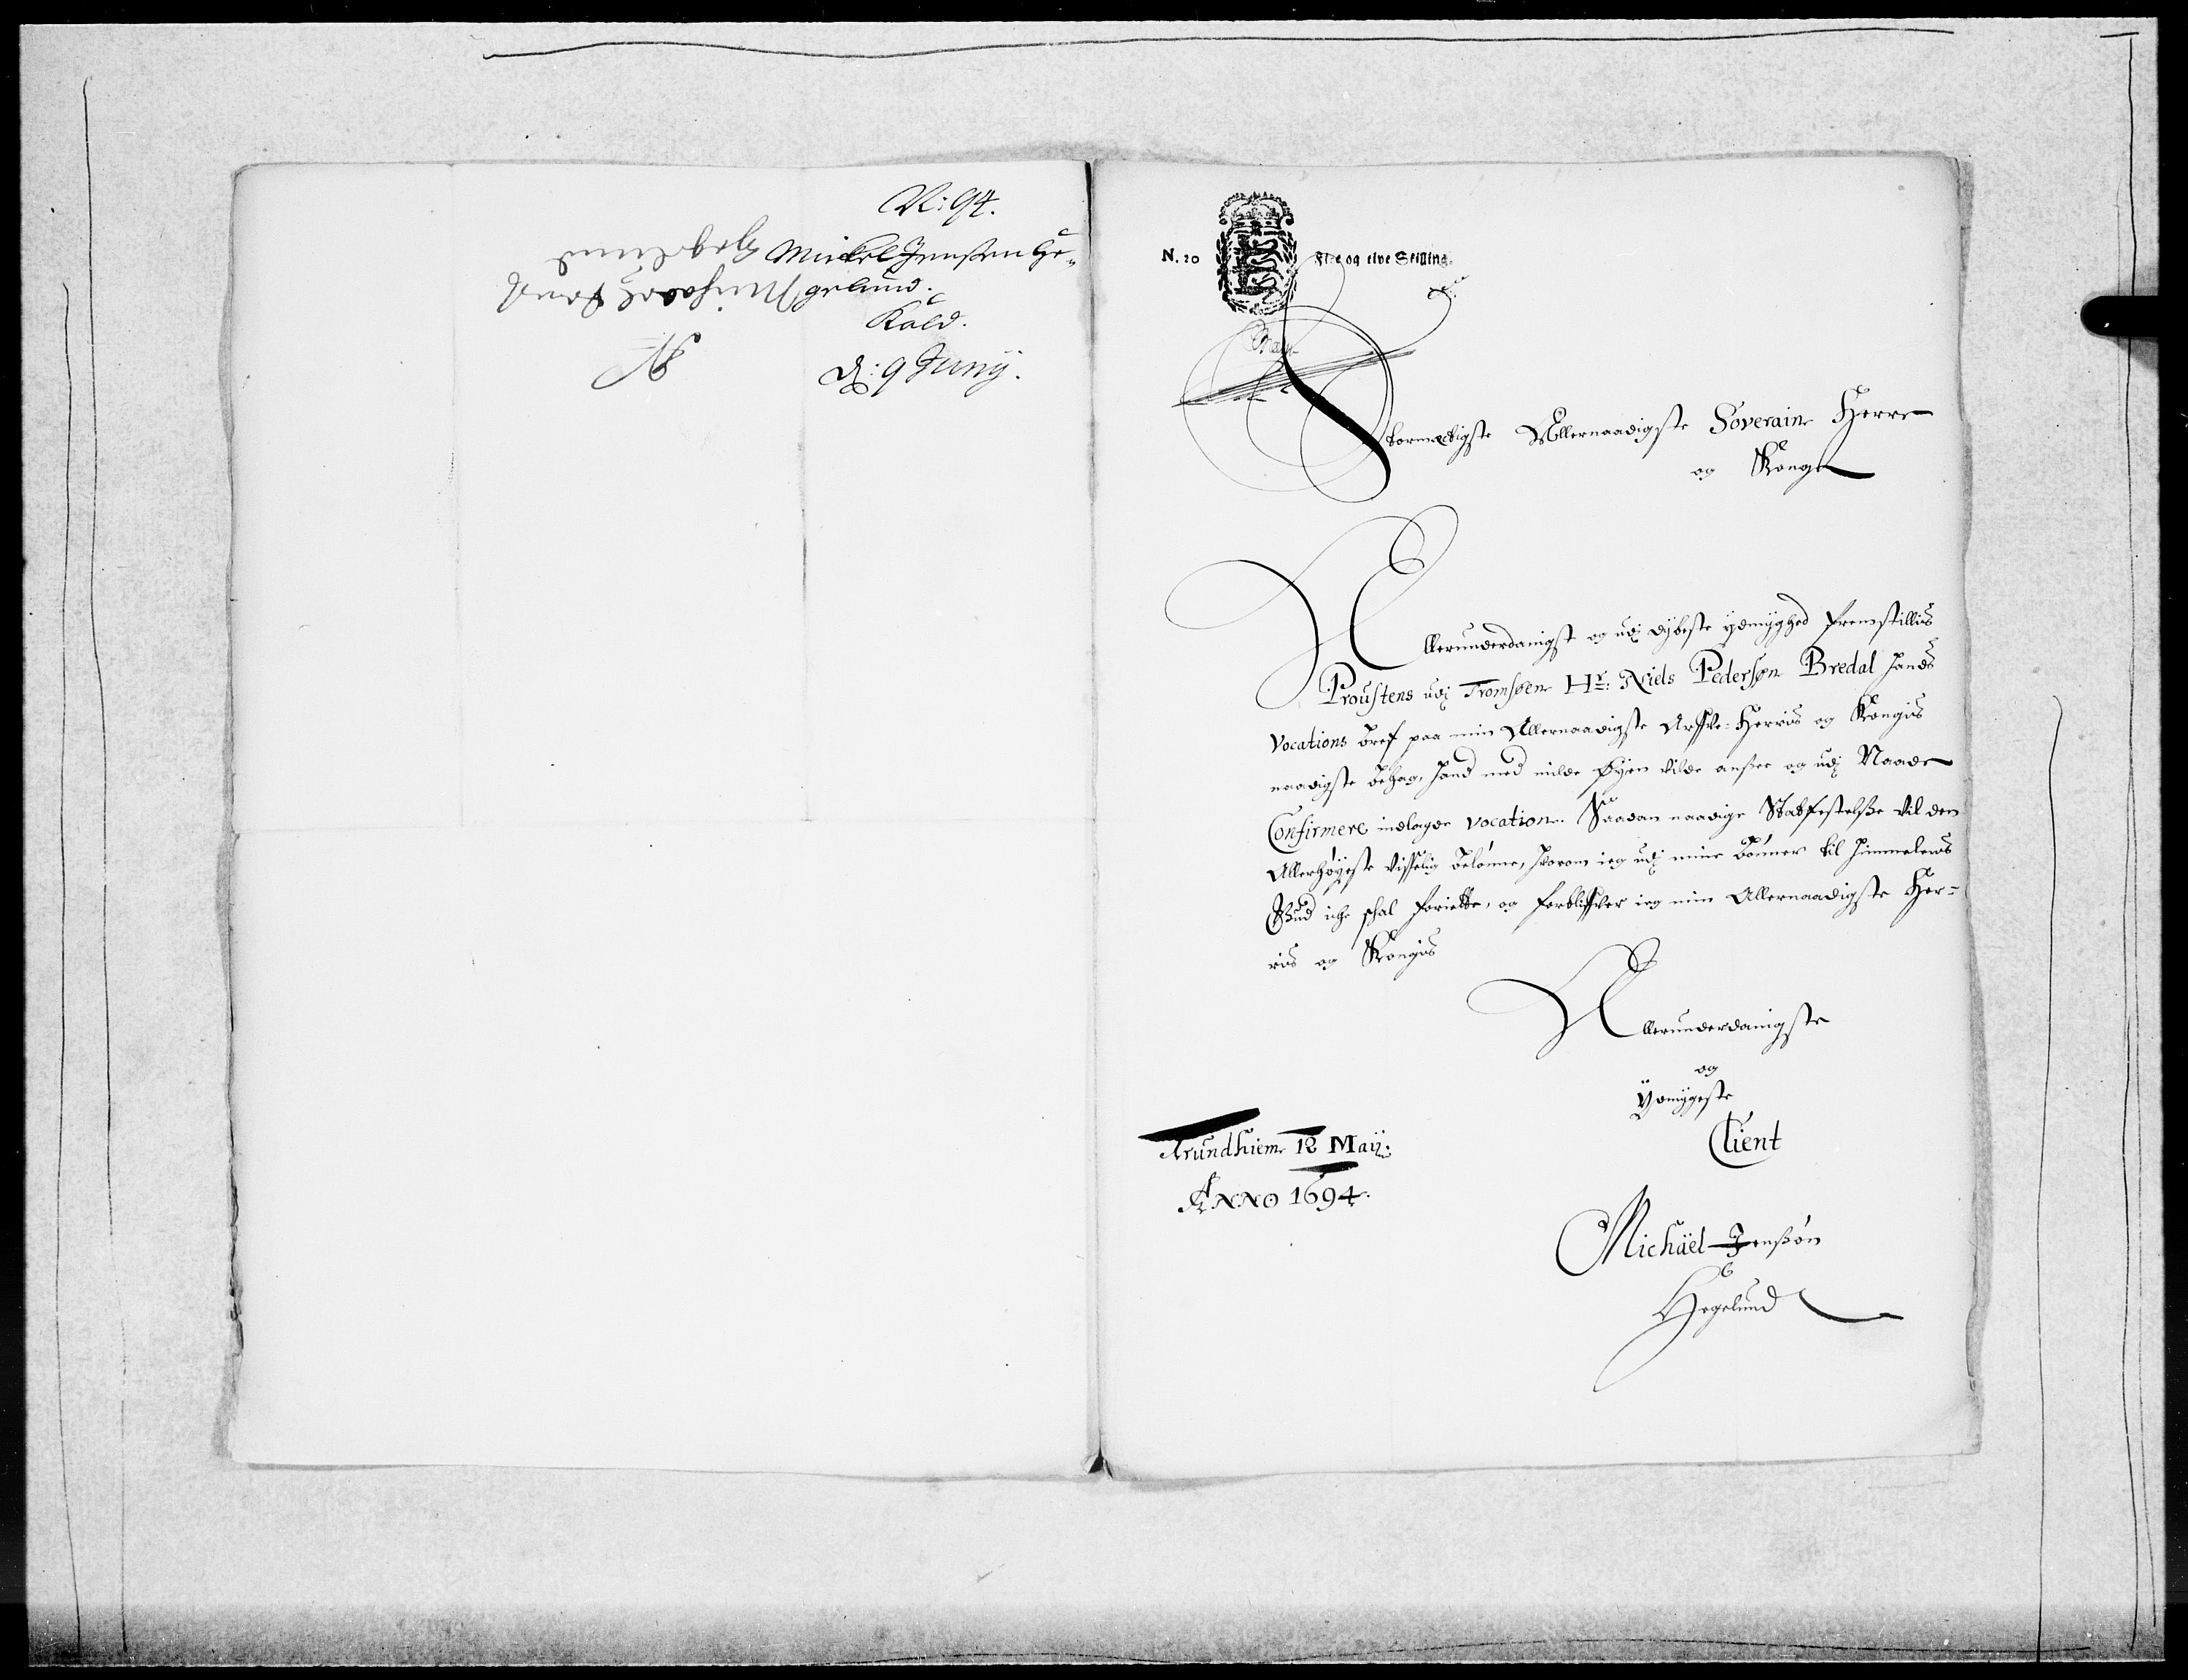 N: 94.
Mickel Jenssen He-
gelund.
Kald.
D: 9 Junij.
Hegelund
N. 20
og tive Skilling
Stormectigste Allernaadigste Soverain Herre
og Konge
Allerunderdanigst og udj dybeste ydmyghed fremstillis
Proustens udj Tromsøen Hr: Niels Pedersøn Bredal hands
Vocations bref paa min Allernaadigste Arffve-Herris og Kongis
naadigste behag, hand med milde Øyen vilde ansee og udj Naade
Confirmere indlagde vocation. Saadan naadige Stadfestelsse vil den
Allerhøyeste visselig belønne, hvorom ieg udj mine bønner til himmelens
Gud iche schal foriette, og forbliffver ieg min Allernaadigste Her-
ris og Kongis
Allerunderdanigste
og
Ydmygeste
Client
Trundhiem 12 Maij:
Anno 1694.
Michäel Jenssøn
Hegelund